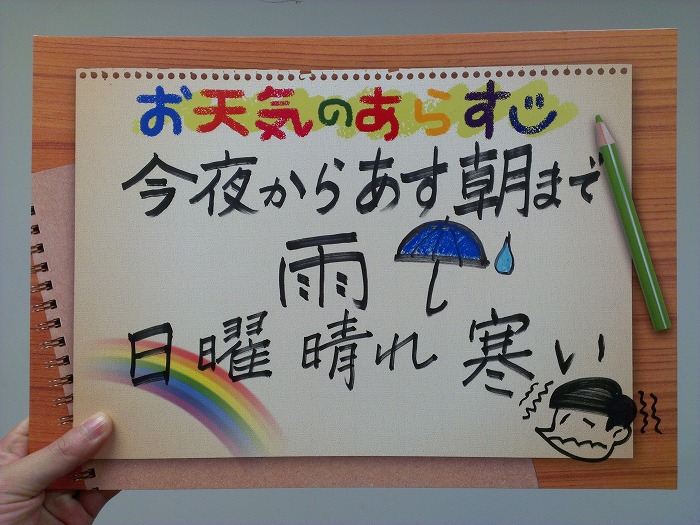 お天気のあらすじ
今夜からあす朝まで
雨
日曜 晴れ 寒い